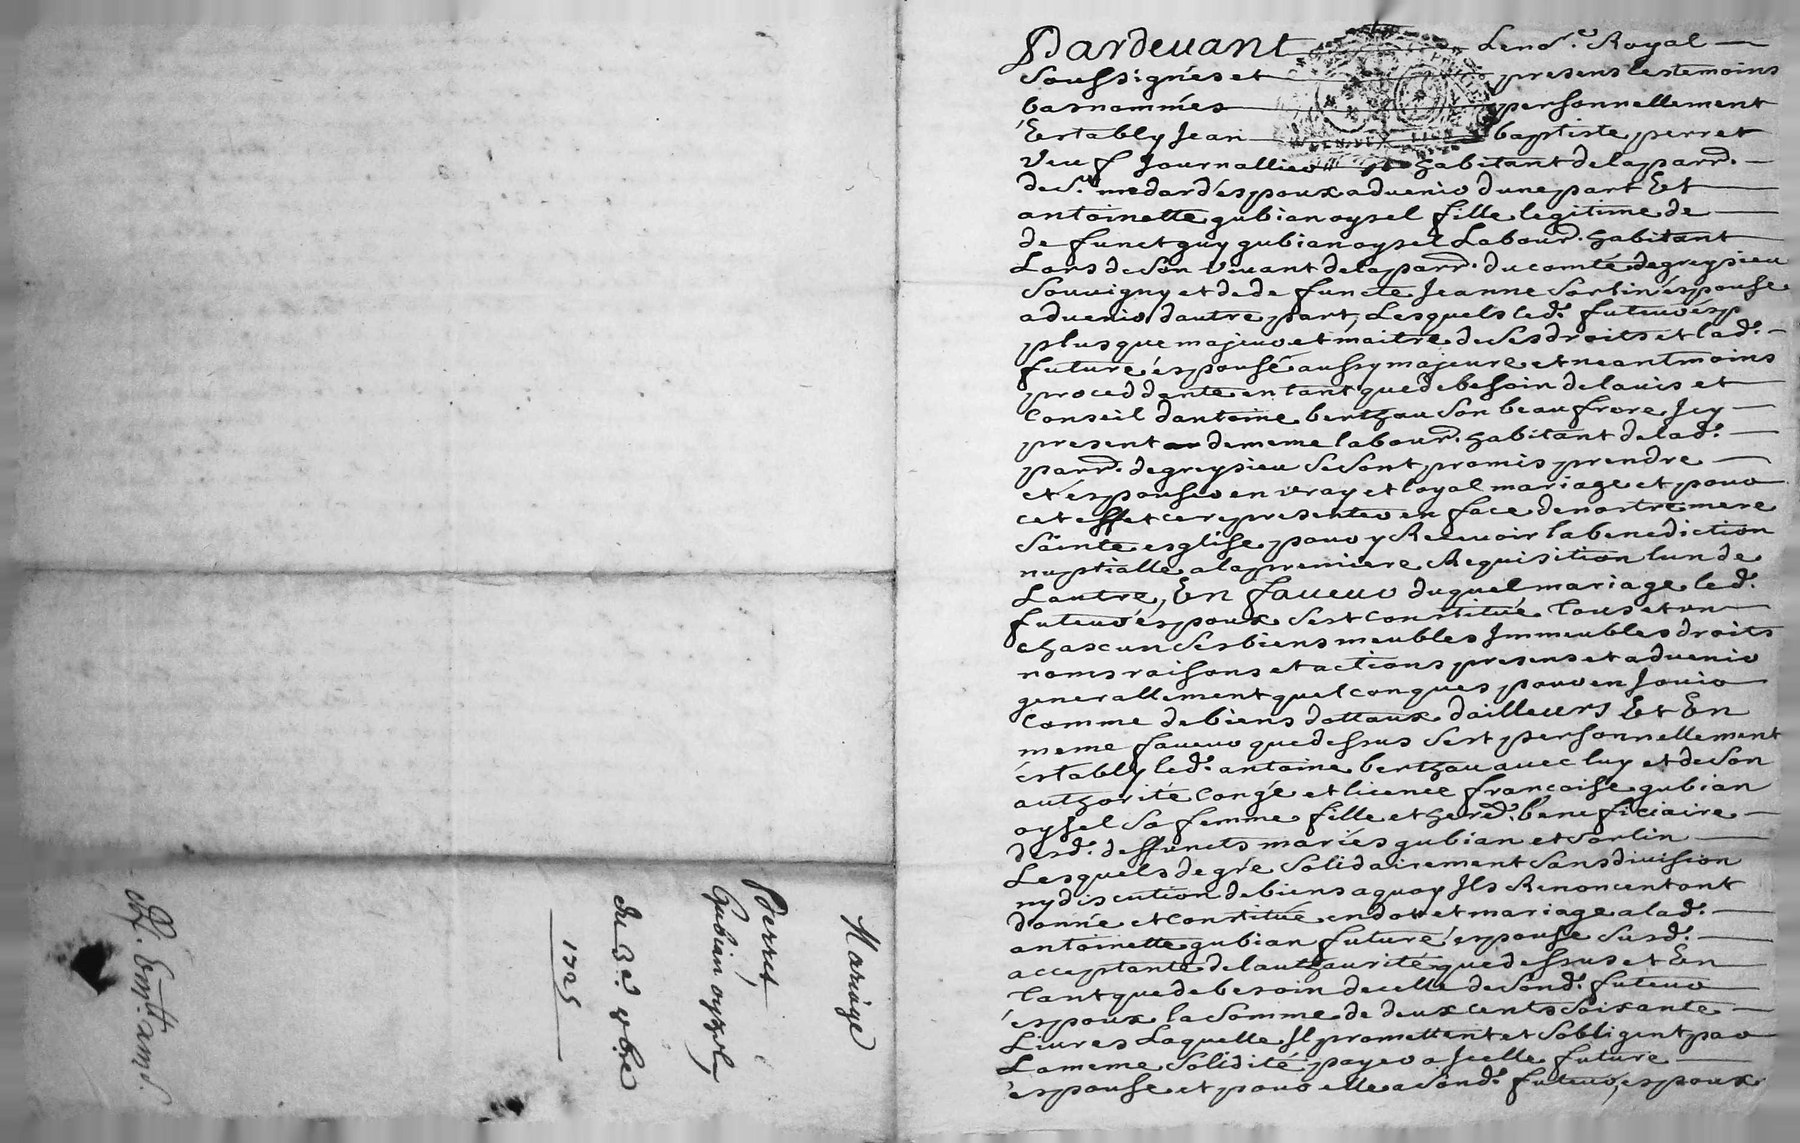 Mariage
Perret
Gubian oysel
du 3.e 9.bre
1725
Pardevant Le no.re Royal
Soussignés et presens les temoins
bas nommés personnellement
Establyjean baptiste perret
veuf Journallier habitant de la parr.
de S.t medard éspoux aduenir dune part Et
antoinette gubian oysel fille legitime de
de funct guy gubian oysel Labour.r habitant
Lors de Son Vivant de la parr. du comté de greysieu
Souvigny et de defuncte Jeanne Sorlin éspouse
aduenir dautre part, Lesquels led. futeur ésp
plus que majeur et maitre de Ses droits et lad.
future éspouse aussy majeure et neantmoins
proceddente en tant que de besoin de lavis et
Conseil dantoine berthau Son beaufrere Jcy
present demême labour.r habitant de lad.
parr. de greysieu Se Sont promis prendre
et éspouser en vray et loyal mariage et pour
cet effet ce representer en face de nostre mere
Sainte esglise pour y Recevoir la benediction
nuptialle a la premiere Requisition lun de
Lautre, En faveur duquel mariage led.
futeur éspoux Sest Constitué tous et un
chascun Ses biens meubles Jmmeubles droits
noms raisons et actions presens et aduenir
generallement quelconques pour en Jouir
Comme de biens dottaux dailleurs Et En
meme faveur que dessus Sest personnellement
éstably led. antoine berthau avec luy et de Son
authorité Congé et licence francoise gubian
oysel Sa femme fille et hered. beneficiaire
desd. deffuncts mariés gubian et Sorlin
Lesquels de gré Solidairement Sans division
ny discution de biens a quoy Jls Renoncent ont
donné et Constitué en dot et mariage a lad.
antoinette gubian future éspouse Susd.
acceptante de lauthaurité que dessus et En
tant que de besoin de celle de Sond. futeur
éspoux la Somme de deux cents Soixante
Livres Laquelle Jl promettent et Sobligent par
La meme Solidité payer a Jcelle future
éspouse et pour elle a Sond. futeur, espoux